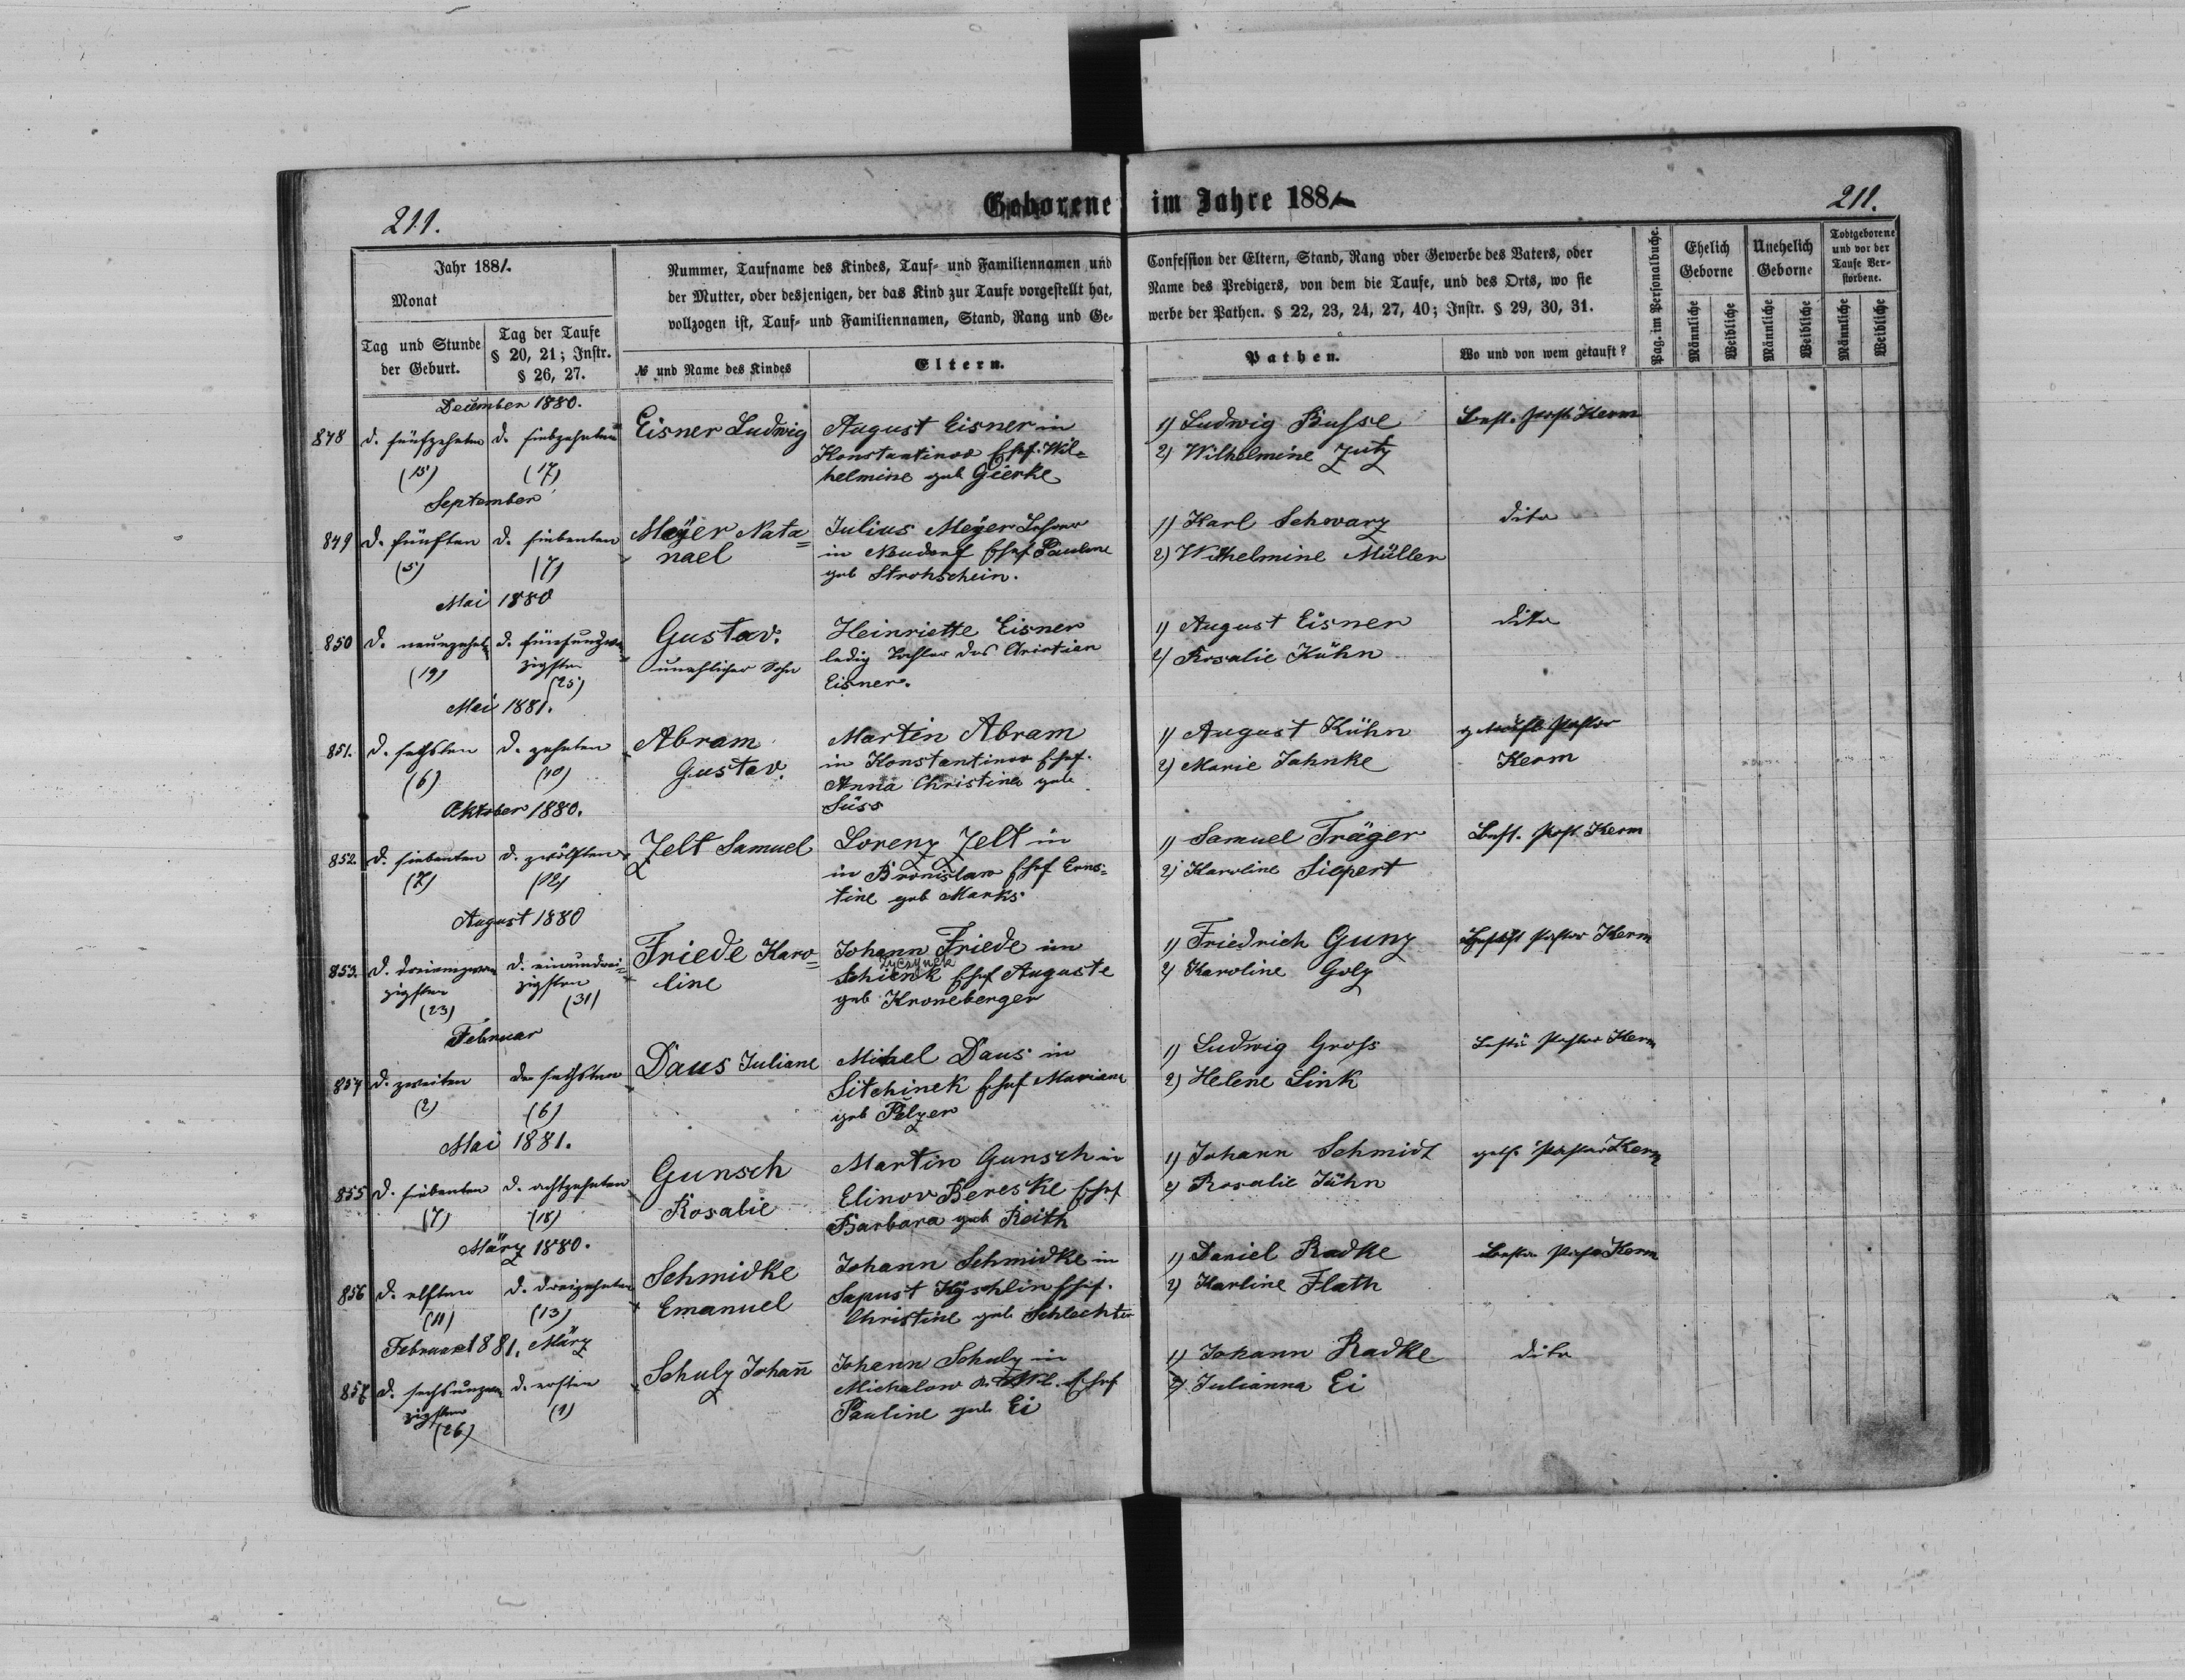 211.
Geborene im Jahre 1881
211.
Jahr 1881.
Monat
Tag und Stunde
der Geburt.
Tag der Taufe
§ 20, 21; Instr.
§ 26, 27.
Nummer, Taufname des Kindes, Tauf- und Familiennamen und
der Mutter, oder desjenigen, der das Kind zur Taufe vorgestellt hat,
vollzogen ist, Tauf- und Familiennamen, Stand, Rang und Ge-
№ und Name des Kindes
Eltern.
Confession der Eltern, Stand, Rang oder Gewerbe des Vaters, oder
Name des Predigers, von dem die Taufe, und des Orts, wo sie
werbe der Pathen. § 22, 23, 24, 27, 40; Instr. § 29, 30, 31.
Pathen.
Wo und von wem getauft?
Pag. im Personalbuche.
Ehelich
Geborne
Unehelich
Geborne
Todtgeborene
und vor der
Taufe Ver-
storbene.
Männliche
Weibliche
Männliche
Weibliche
Männliche
Weibliche
December 1880.
848
d. fünfzehnten
(15)
d. siebzehnten
(17)
Eisner Ludwig
August Eisner in
Konstantinow Ehf. Wil=
helmine geb Gierke
1) Ludwig Busse
2) Wilhelmine Jutz
Best. Past. Kerm
September
849
d. fünften
(5)
d. siebenten
(7)
Meyer Nata=
nael
Julius Meyer
in Neudorf Ehf Pauline
geb Strohschein.
1) Karl Schwarz
2) Wilhelmine Müller
dito
Mai 1880
850
d. neunzehn
(19)
d. fünfundzwan
zigsten
(25)
Gustav.
unehlicher Sohn
Heinriette Eisner
ledig Tochter des Christian
Eisner.
1) August Eisner
2) Rosalie Kühn
dito
Mai 1881.
851.
d. sechsten
(6)
d. zehnten
(10)
Abram
Gustav.
Martin Abram
in Konstantinow Ehf.
Anna Christine geb
Süss
1) August Kühn
2) Marie Jahnke
Pastor
Kerm
Oktober 1880.
852.
d. siebenten
(7)
d. zwölften
(12)
Zelt Samuel
Lorenz Zelt in
in Bronislaw Ehf Erns=
tine geb Marks
1) Samuel Träger
2) Karoline Siepert
Best. Past. Kerm
August 1880
853.
d. dreiundzwan
zigsten
(23)
d. einunddrei=
zigsten
(31)
Friede Karo=
line
Johann Friede im
Zyczynek
Schienk Ehf Auguste
geb Kroneberger
1) Friedrich Gunz
2) Karoline Golz
Pastor Kerm
Februar
854
d. zweiten
(2)
d. sechsten
(6)
Daus Juliane
Michel Daus in
Sitchinek Ehf Mariane
geb Pelzer
1) Ludwig Gross
2) Helene Link
Pastor Kerm
Mai 1881.
855
d. siebenten
(7)
d. achtzehnten
(18)
Gunsch
Rosalie
Martin Gunsch in
Elinow Bereske Ehf
Barbara geb Reith
1) Johann Schmidt
2) Rosalie Jühn
Pastor Kerm
März 1880.
856
d. elften
(11)
d. dreizehnten
(13)
Schmidke
Emanuel
Johann Schmidke in
Sapust Kyschlin Ehf.
Christine geb Schlechter
1) Daniel Radke
2) Karline Flath
Kerm
Februar 1881. März
857
d. sechsundzwan
zigsten
(26)
d. ersten
(1)
Schulz Johañ
Johann Schulz in
Michalow Ehf
Pauline geb Ei
1) Johann Radke
2) Julianna Ei
dito